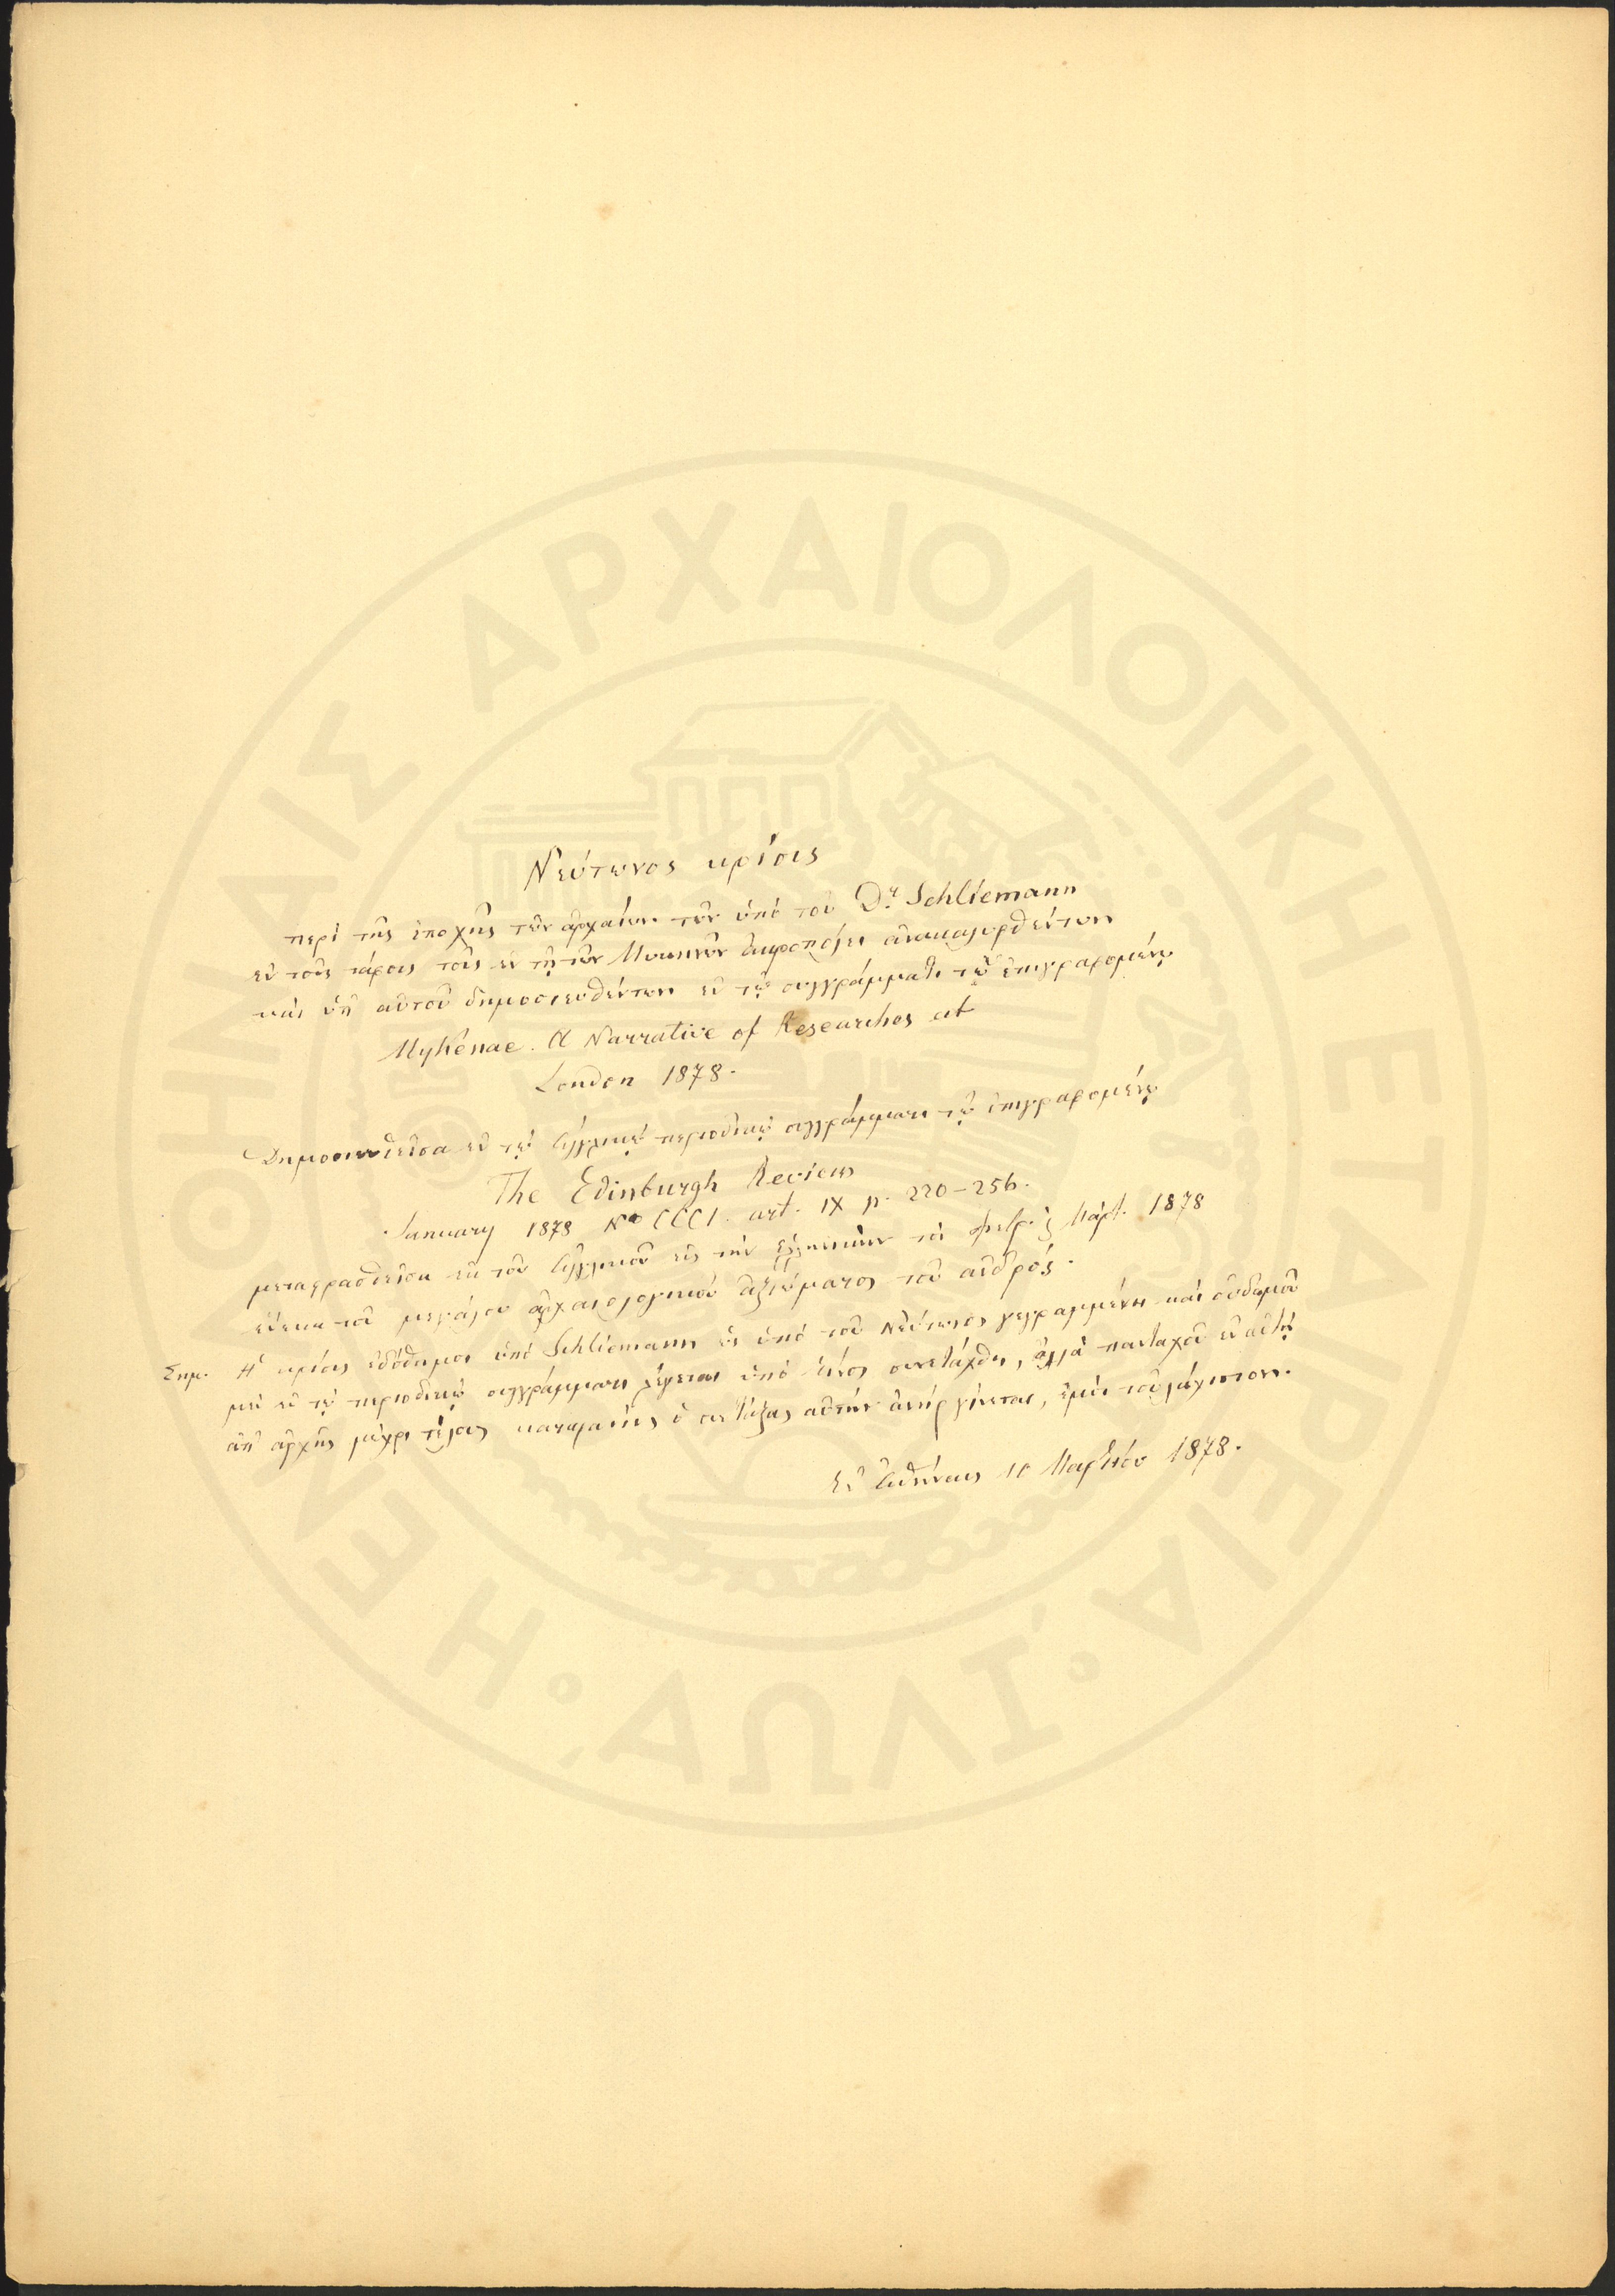 Νεύτωνος κρίσις
περὶ τῆς ἐποχῆς τῶν ἀρχαίων τῶν ὑπὸ τοῦ Dr. Schliemann
ἐν τοῖς τάφοις τοῖς ἐν τῇ τῶν Μυκηνῶν ἀκροπόλει ἀνακαλυφθέντων
καὶ ὑπ' αὐτοῦ δημοσιευθέντων ἐν τῷ συγγράμματι τῷ ἐπιγραφομένῳ
Mykenae. A Narrative of Researches at
London 1878.
Δημοσιευθεῖσα ἐν τῷ Ἀγγλικῷ περιοδικῷ συγγράμματι τῷ ἐπιγραφομένῳ
The Edinburgh Review
January 1878 No CCCI. art. IX p. 220-256.
μεταφρασθεῖσα ἐκ τοῦ Ἀγγλικοῦ εἰς τὴν Ἑλληνικὴν Φεβρ. Μάρτ. 1878
ἕνεκα τοῦ μεγάλου ἀρχαιολογικοῦ ἀξιώματος τοῦ ἀνδρός.
Σημ. Ἡ κρίσις ἐδόθη μοι ὑπὸ Schliemann ὡς ὑπὸ τοῦ Νεύτωνος γεγραμμένη καὶ οὐδαμοῦ
μὲν ἐν τῷ περιοδικῷ συγγράμματι λέγεται ὑπὸ τίνος συνετάχθη, ἀλλὰ πανταχοῦ ἐν αὐτῇ
ἀπ' ἀρχῆς μέχρι τέλους καταφανὴς ὁ συντάξας αὐτὴν ἀνὴρ γίνεται, ἐμοὶ τοὐλάχιστον.
Ἐν Ἀθήναις 10 Μαρτίου 1878.
ΑΡΧΑΙΟΛΟΓΙΚΗ ΕΤΑΙΡΕΙΑ
Η ΕΝ ΑΘΗΝΑΙΣ
ΑΩΛΖ